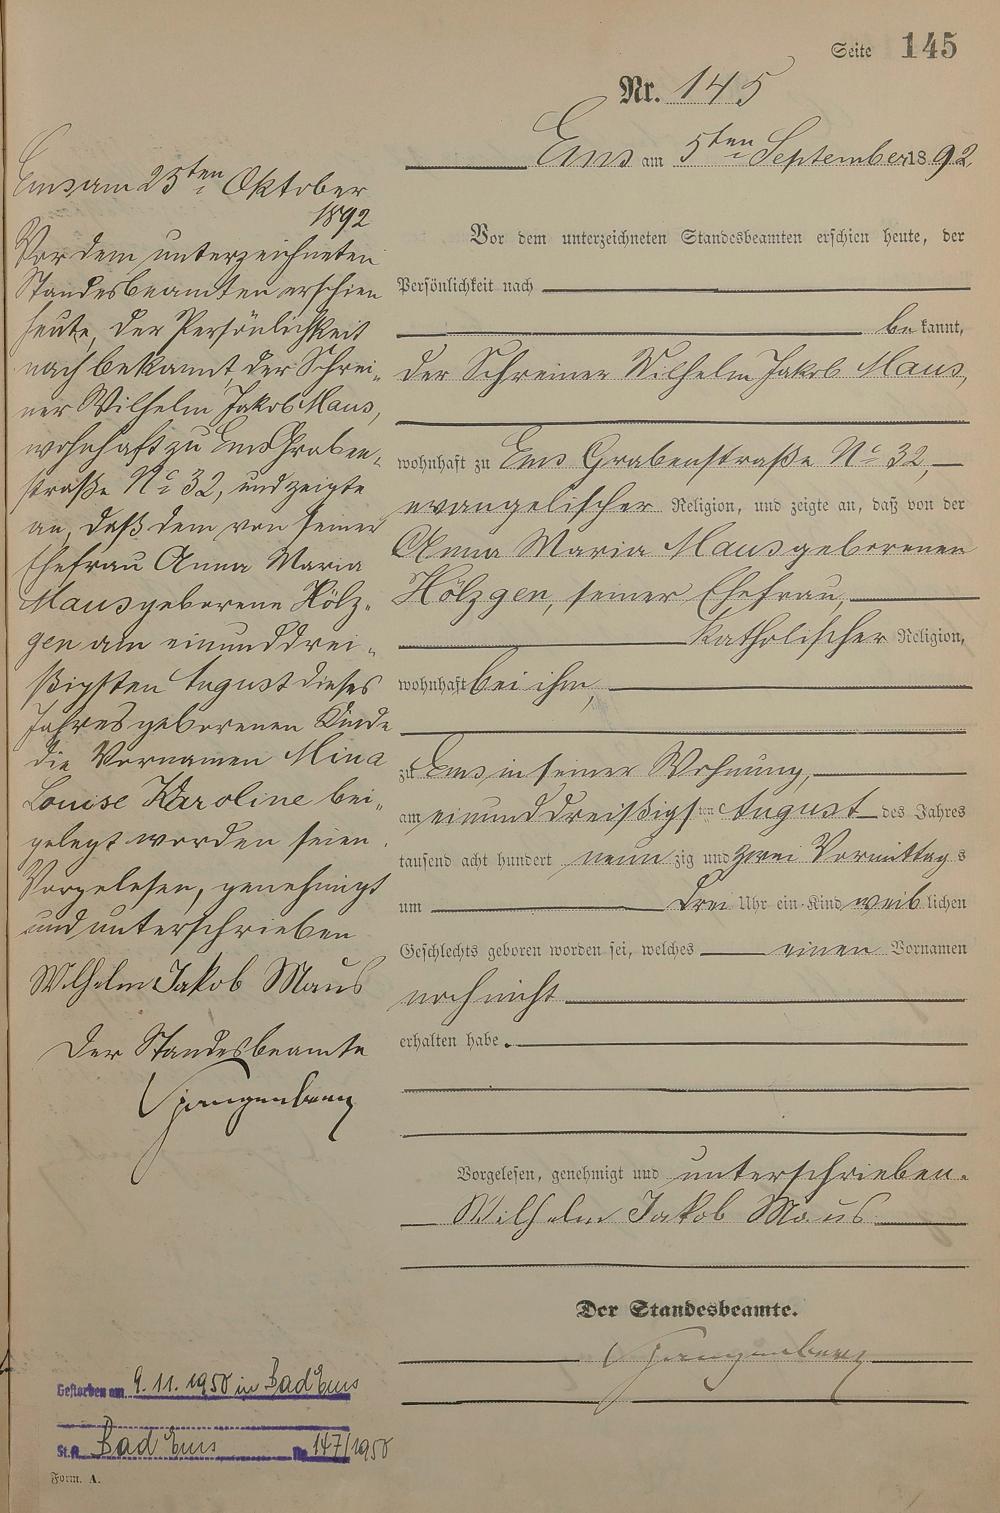 Seite 145
Nr. 145
Ems am 5ten September 1892
Vor dem unterzeichneten Standesbeamten erschien heute, der
Persönlichkeit nach
be kannt,
der Schreiner Wilhelm Jakob Maus,
wohnhaft zu Ems Grabenstraße No 32,
evangelischer Religion, und zeigte an, daß von der
Anna Maria Maus geborenen
Hölzgen, seiner Ehefrau,
katholischer Religion,
wohnhaft bei ihm,
zu Ems in seiner Wohnung,
am einunddreißigsten August des Jahres
tausend acht hundert neun zig und zwei Vormittags
um drei Uhr ein Kind weiblichen
Geschlechts geboren worden sei, welches einen Vornamen
noch nicht
erhalten habe.
Vorgelesen, genehmigt und unterschrieben.
Wilhelm Jakob Maus
Der Standesbeamte.
Ems am 25ten Oktober
1892
Vor dem unterzeichneten
Standesbeamten erschien
heute, der Persönlichkeit
nach bekannt, der Schrei-
ner Wilhelm Jakob Maus,
wohnhaft zu Ems Graben-
straße No 32, und zeigte
an, daß dem von seiner
Ehefrau Anna Maria
Maus geborene Hölz-
gen am einunddrei-
ßigsten August dieses
Jahres geborenen Kinde
die Vornamen Mina
Louise Karoline bei-
gelegt worden seien.
Vorgelesen, genehmigt
und unterschrieben
Wilhelm Jakob Maus
Der Standesbeamte
Gestorben am 9.11.1950 in Bad Ems
St.A. Bad Ems No 147/1950
Form. A.